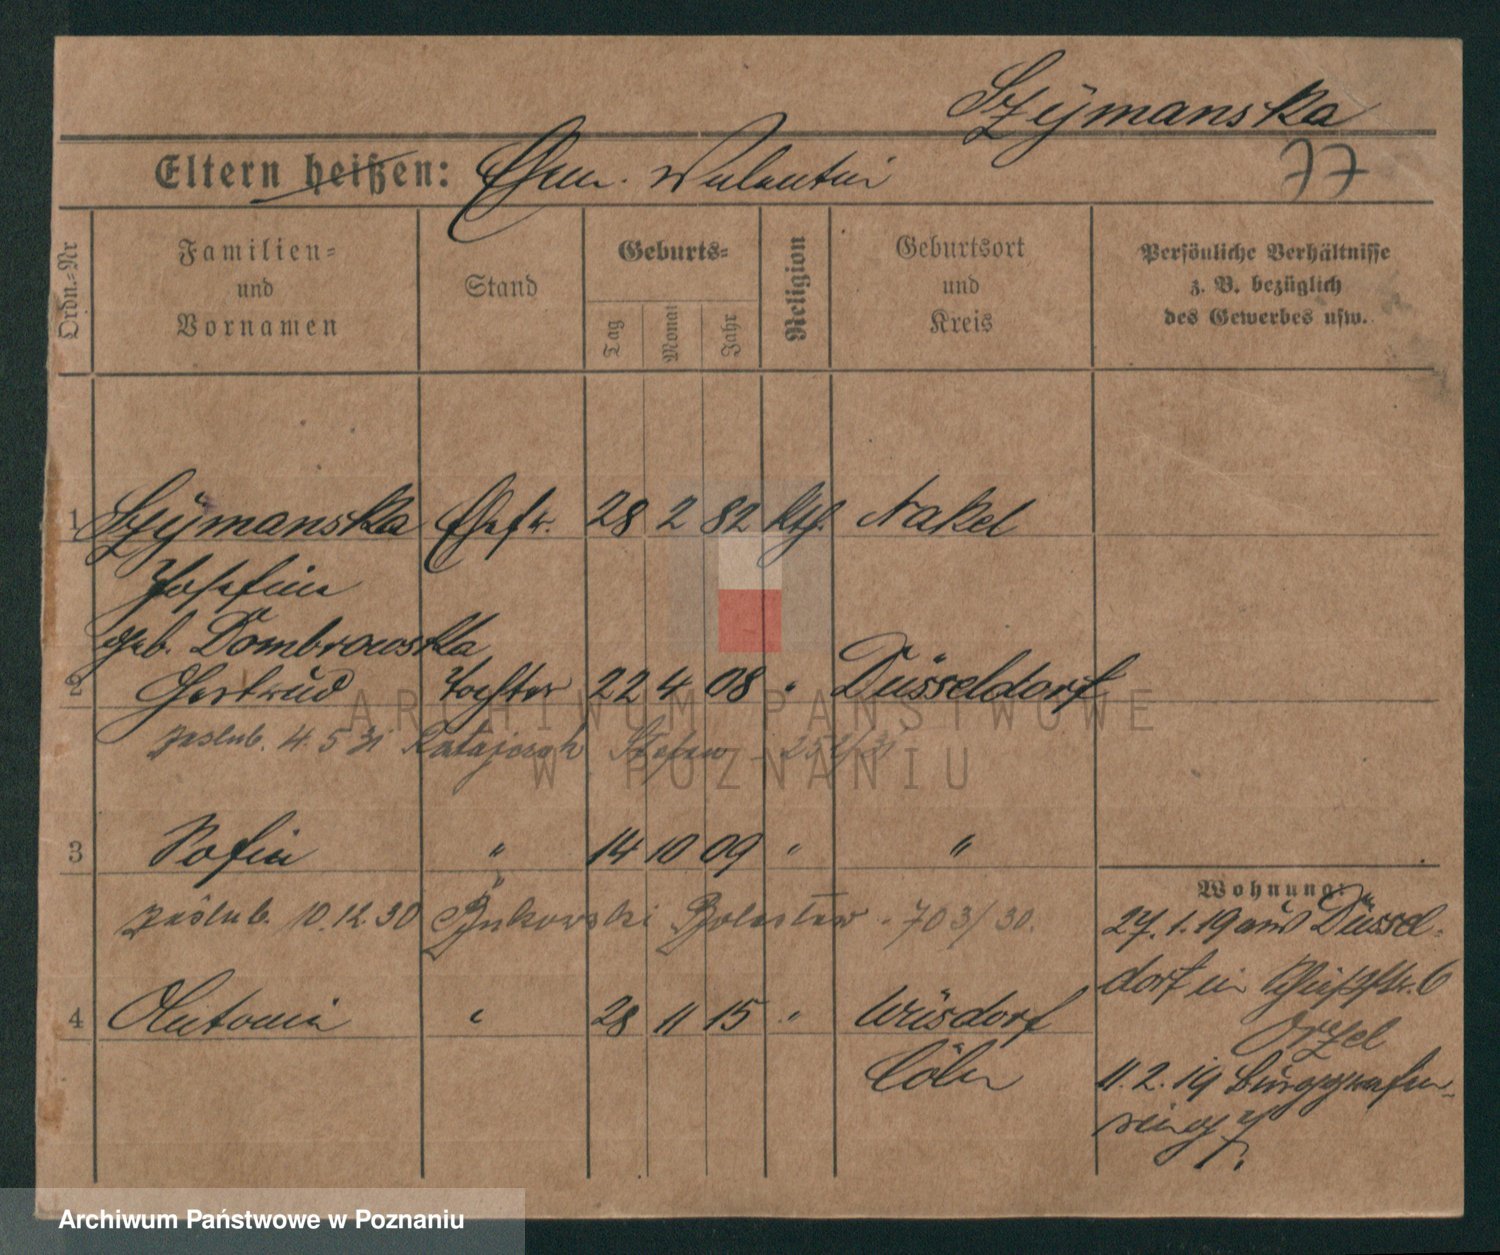 Szymanska
77
Eltern heißen: Ehem. Valentin
Ordn.-Nr
Familien-
und
Vornamen
Stand
Geburts-
Tag
Monat
Jahr
Religion
Geburtsort
und
Kreis
Persönliche Verhältnisse
z. B. bezüglich
des Gewerbes usw.
1 Szymanska Ehefr. 28 2 82 kth. Nakel
Josefine
geb. Dombrowska
2 Gertrud Tochter 22 4 08 " Düsseldorf
zaślub. 4. 5 31 Ratajczak Stefan
3 Sofia " 14 10 09 " "
zaślub. 10. 12. 30 Bukowski Bolesław - 703/30.
4 Antonia " 28 11 15 " Wüsdorf
Cöln
Wohnung:
27. 1. 19 aus Düssel-
dorf in 6
Orzel
11. 2. 19 Burggrafen-
ring 7.
ARCHIWUM PAŃSTWOWE
W POZNANIU
Archiwum Państwowe w Poznaniu